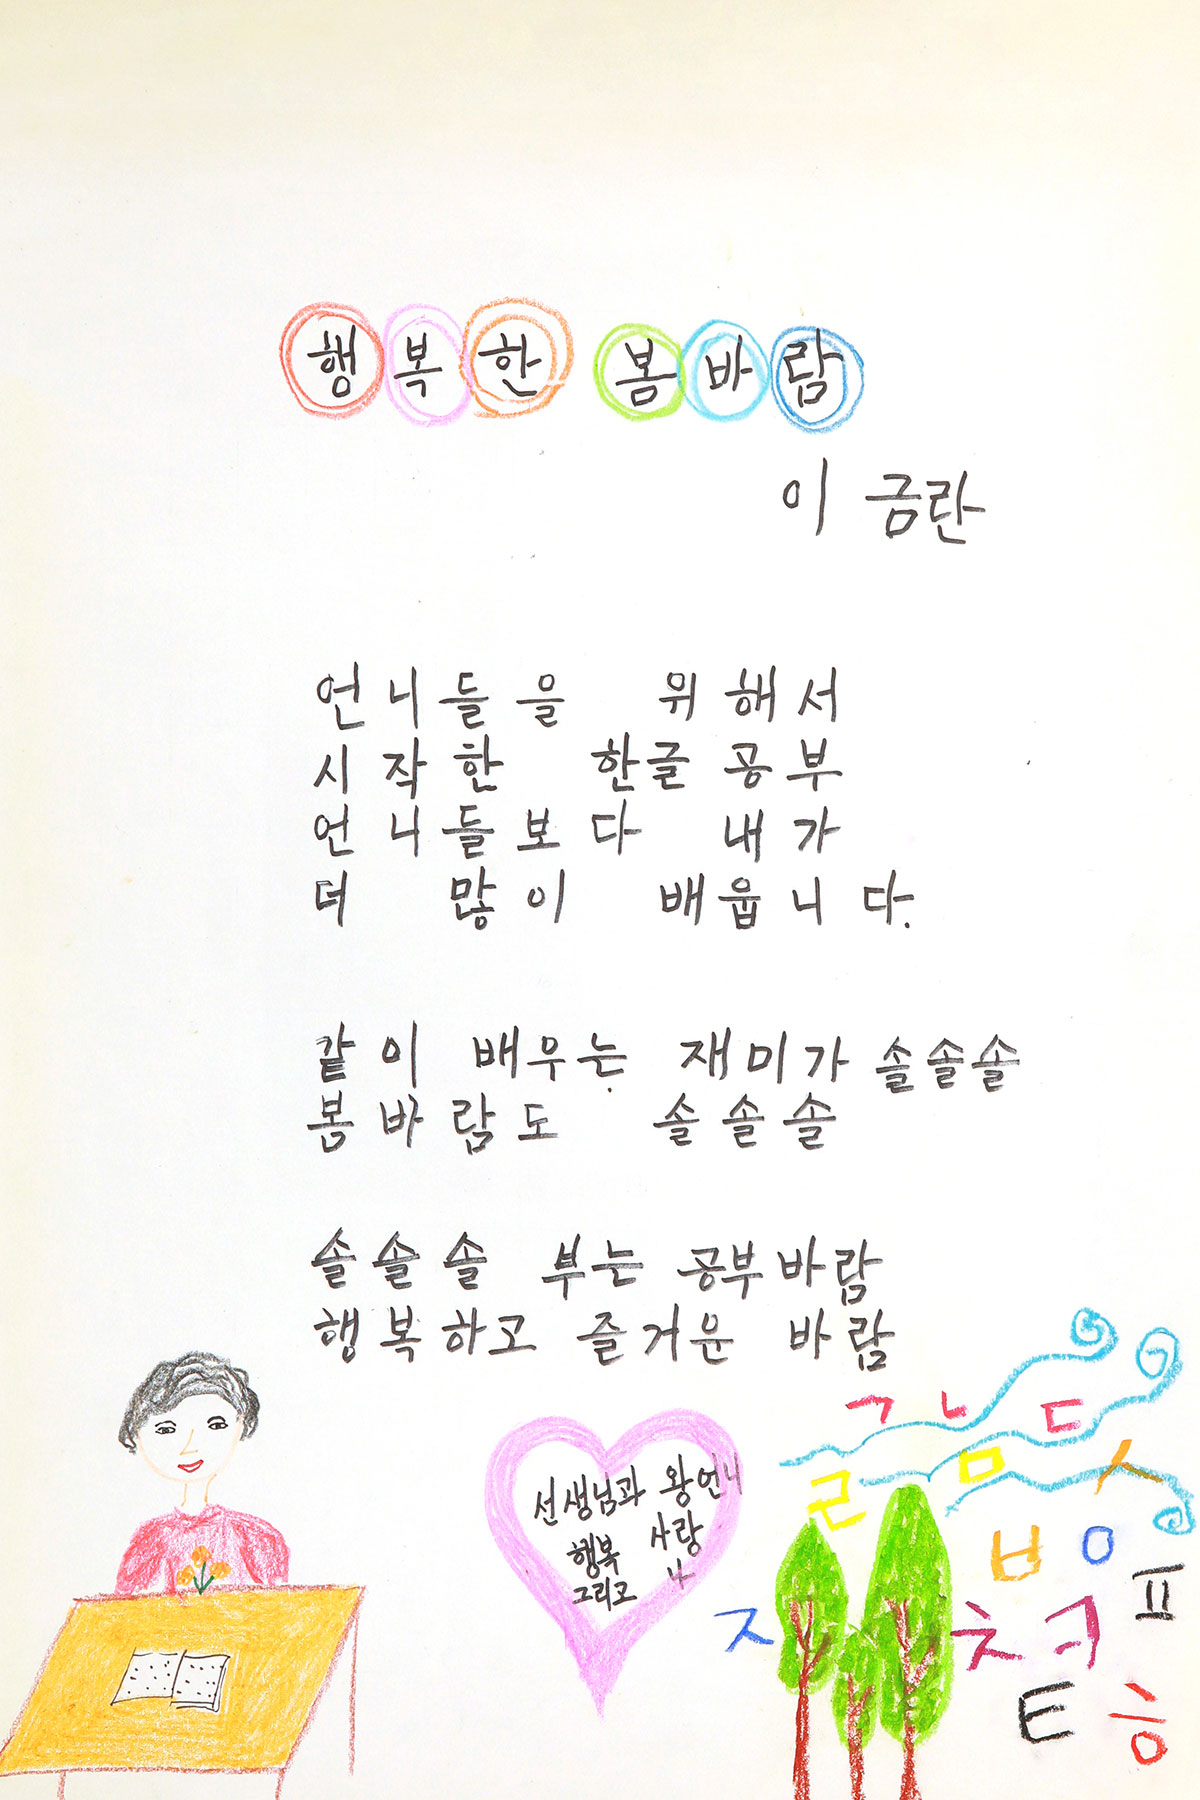 행복한 봄바람
이 금란
언니들을 위해서
시작한 한글공부
언니들보다 내가
더 많이 배웁니다.
같이 배우는 재미가 솔솔솔
봄바람도 솔솔솔
솔솔솔 부는 공부바람
행복하고 즐거운 바람
선생님과 왕언니
행복 사랑
그리고
ㄱ ㄴ ㄷ
ㄹ ㅁ ㅅ
ㅂ ㅇ ㅍ
ㅈ ㅊ ㅋ
ㅌ ㅎ